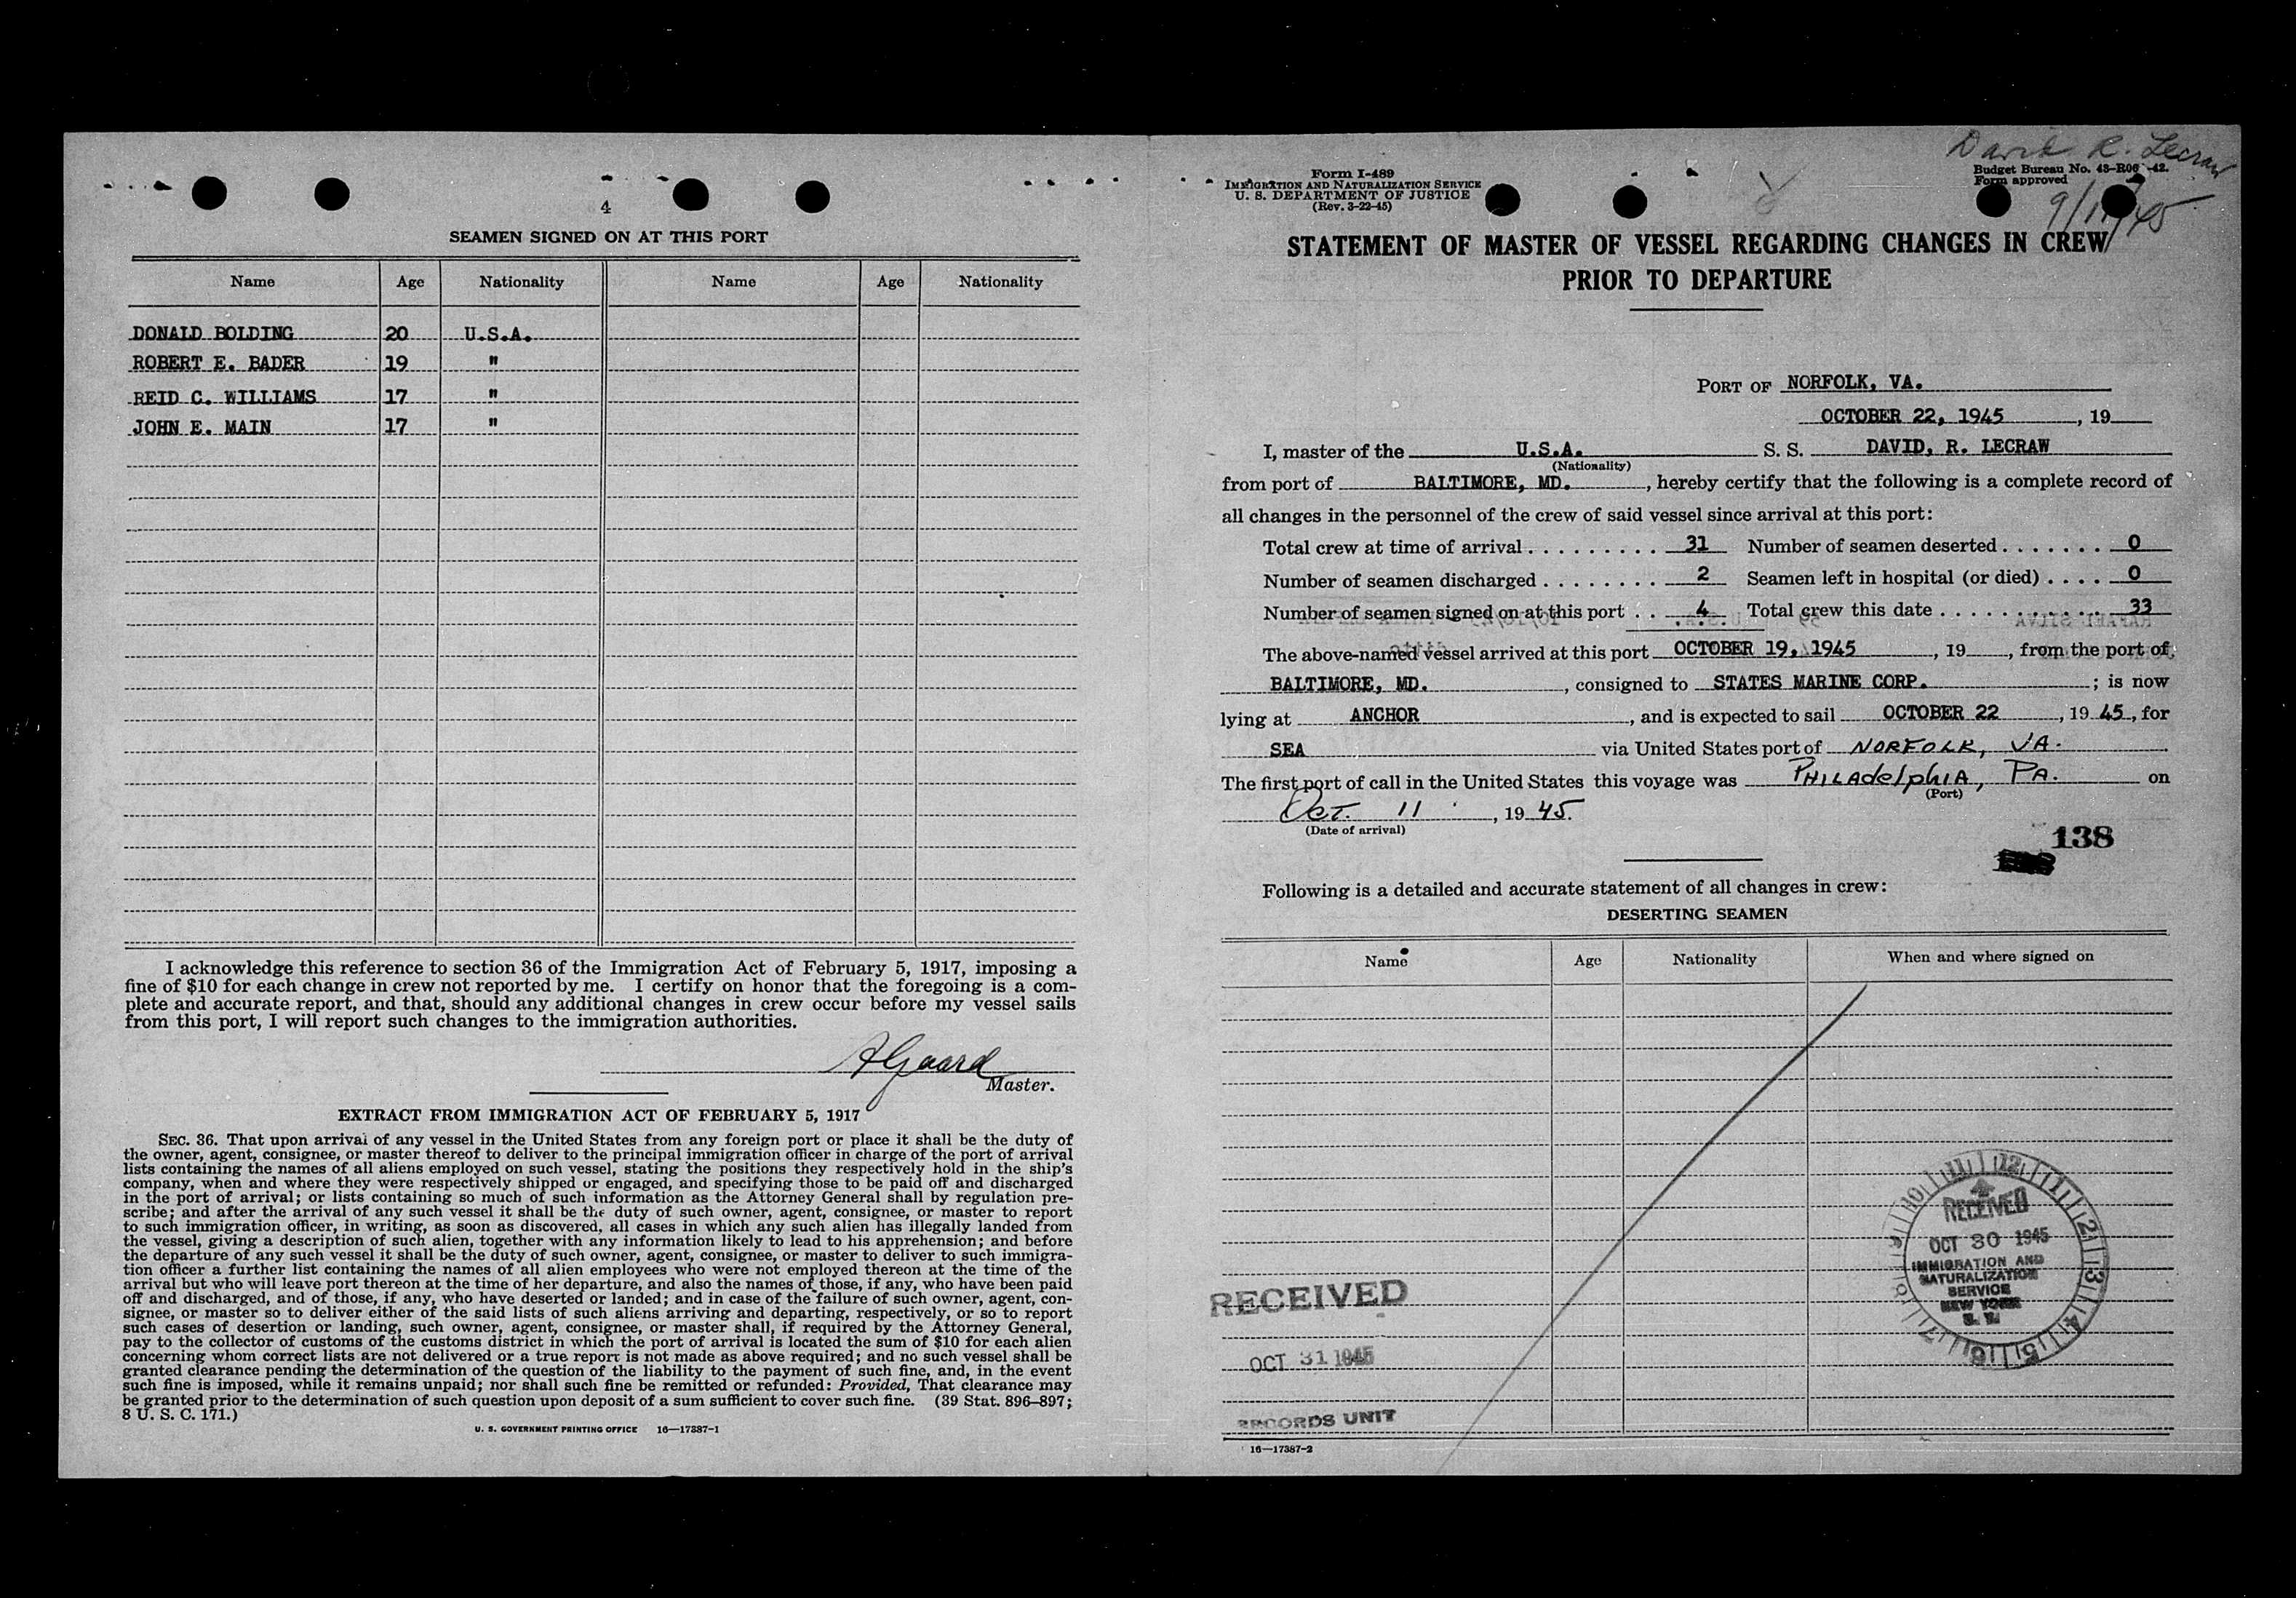 4
SEAMEN SIGNED ON AT THIS PORT
Name Age Nationality Name Age Nationality
DONALD BOLDING 20 U.S.A.
ROBERT E. BADER 19 "
REID C. WILLIAMS 17 "
JOHN E. MAIN 17 "
I acknowledge this reference to section 36 of the Immigration Act of February 5, 1917, imposing a
fine of $10 for each change in crew not reported by me. I certify on honor that the foregoing is a com-
plete and accurate report, and that, should any additional changes in crew occur before my vessel sails
from this port, I will report such changes to the immigration authorities.
Master.
EXTRACT FROM IMMIGRATION ACT OF FEBRUARY 5, 1917
SEC. 36. That upon arrival of any vessel in the United States from any foreign port or place it shall be the duty of
the owner, agent, consignee, or master thereof to deliver to the principal immigration officer in charge of the port of arrival
lists containing the names of all aliens employed on such vessel, stating the positions they respectively hold in the ship's
company, when and where they were respectively shipped or engaged, and specifying those to be paid off and discharged
in the port of arrival; or lists containing so much of such information as the Attorney General shall by regulation pre-
scribe; and after the arrival of any such vessel it shall be the duty of such owner, agent, consignee, or master to report
to such immigration officer, in writing, as soon as discovered, all cases in which any such alien has illegally landed from
the vessel, giving a description of such alien, together with any information likely to lead to his apprehension; and before
the departure of any such vessel it shall be the duty of such owner, agent, consignee, or master to deliver to such immigra-
tion officer a further list containing the names of all alien employees who were not employed thereon at the time of the
arrival but who will leave port thereon at the time of her departure, and also the names of those, if any, who have been paid
off and discharged, and of those, if any, who have deserted or landed; and in case of the failure of such owner, agent, con-
signee, or master so to deliver either of the said lists of such aliens arriving and departing, respectively, or so to report
such cases of desertion or landing, such owner, agent, consignee, or master shall, if required by the Attorney General,
pay to the collector of customs of the customs district in which the port of arrival is located the sum of $10 for each alien
concerning whom correct lists are not delivered or a true report is not made as above required; and no such vessel shall be
granted clearance pending the determination of the question of the liability to the payment of such fine, and, in the event
such fine is imposed, while it remains unpaid; nor shall such fine be remitted or refunded: Provided, That clearance may
be granted prior to the determination of such question upon deposit of a sum sufficient to cover such fine. (39 Stat. 896–897;
8 U. S. C. 171.)
U. S. GOVERNMENT PRINTING OFFICE 16—17387-1
David R. Lecraw
Form I-489
IMMIGRATION AND NATURALIZATION SERVICE
U. S. DEPARTMENT OF JUSTICE
(Rev. 3-22-45)
Budget Bureau No. 43-R06 -42.
Form approved
STATEMENT OF MASTER OF VESSEL REGARDING CHANGES IN CREW
PRIOR TO DEPARTURE
PORT OF NORFOLK, VA.
OCTOBER 22, 1945, 19
I, master of the U.S.A. S. S. DAVID, R. LECRAW
(Nationality)
from port of BALTIMORE, MD., hereby certify that the following is a complete record of
all changes in the personnel of the crew of said vessel since arrival at this port:
Total crew at time of arrival 31 Number of seamen deserted 0
Number of seamen discharged 2 Seamen left in hospital (or died) 0
Number of seamen signed on at this port 4 Total crew this date 33
The above-named vessel arrived at this port OCTOBER 19, 1945, 19, from the port of
BALTIMORE, MD., consigned to STATES MARINE CORP.; is now
lying at ANCHOR, and is expected to sail OCTOBER 22, 19 45, for
SEA via United States port of NORFOLK, VA.
The first port of call in the United States this voyage was PHILAdelphIA, PA. on
(Port)
Oct. 11, 19 45.
(Date of arrival)
138
Following is a detailed and accurate statement of all changes in crew:
DESERTING SEAMEN
Name Age Nationality When and where signed on
RECEIVED
OCT 30 1945
IMMIGRATION AND
NATURALIZATION
SERVICE
NEW YORK
N. Y.
RECEIVED
OCT 31 1945
RECORDS UNIT
16—17387-2